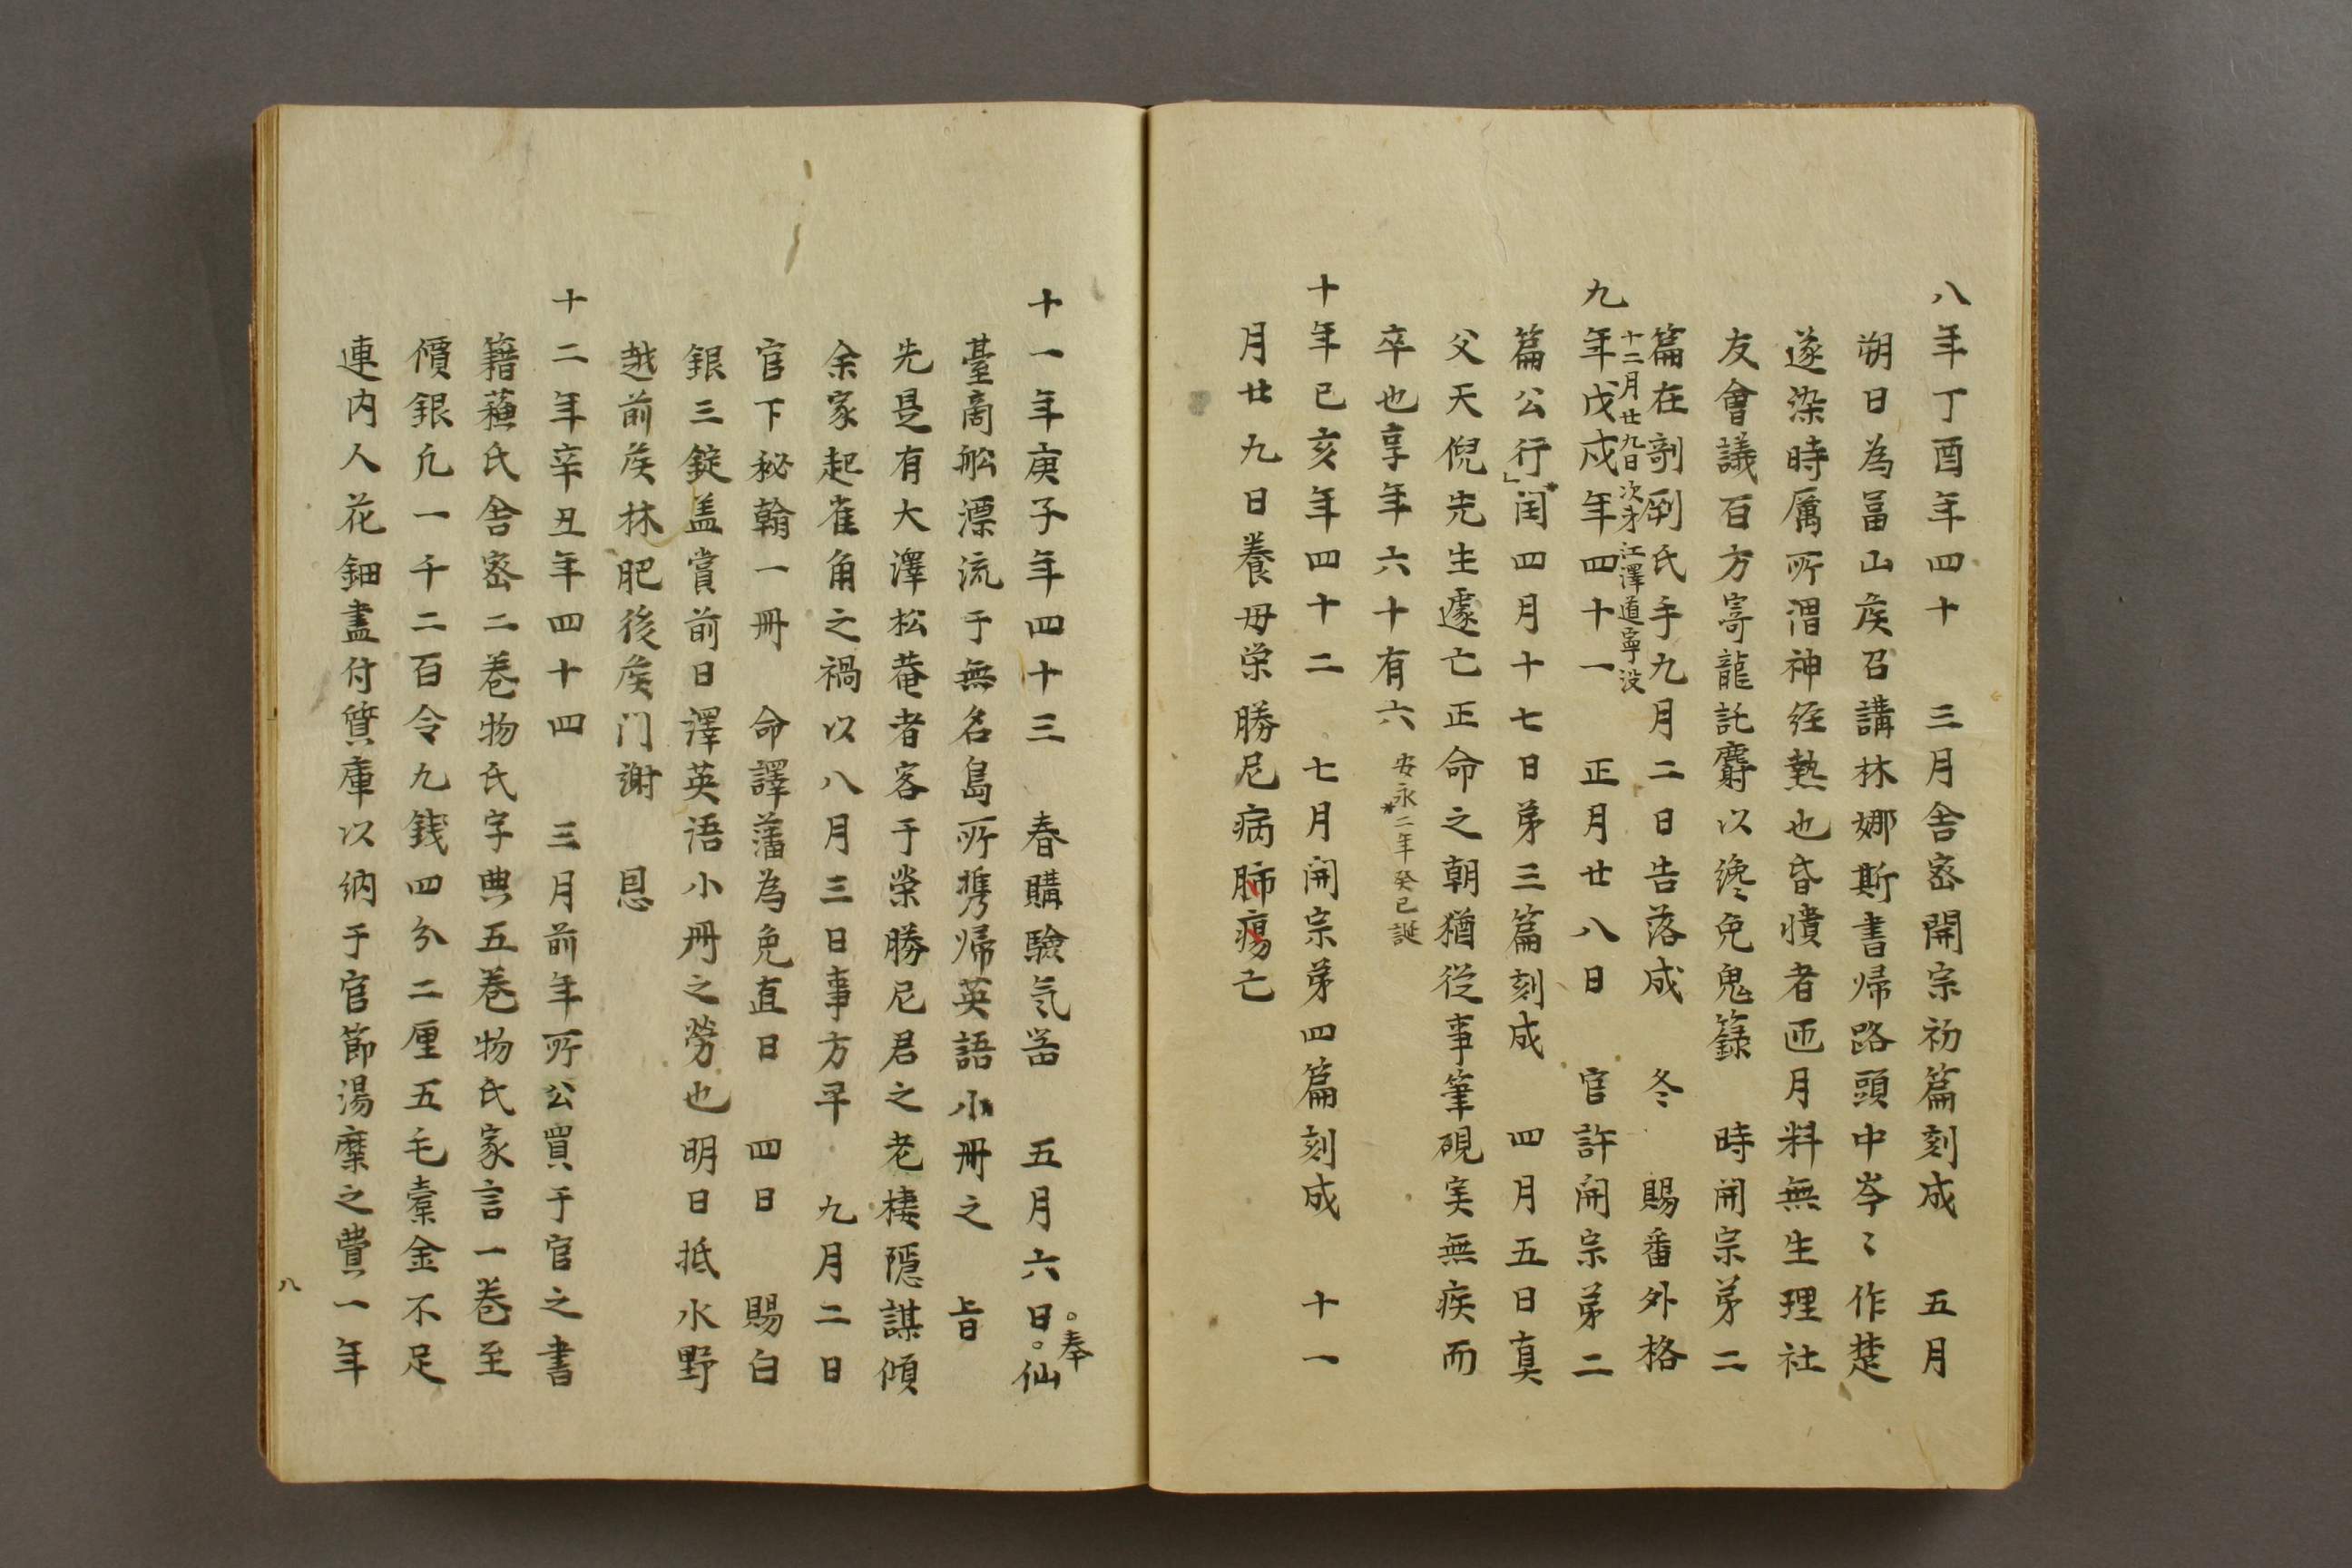 八年丁酉年四十　三月舎密開宗初篇刻成　五月
朔日為畐山矦召講林娜斯書帰路頭中岑〻作楚
遂染時厲所謂神経熱也昏憒者迊月料無生理社
友會議百方寄龍託麝以纔免鬼籙　時開宗苐二
篇在剞劂氏手九月二日告落成　冬　賜番外格
十二月廿九日次才江澤道寧没
九年戊戌年四十一　正月廿八日　官許開宗苐二
篇公行」閏四月十七日苐三篇刻成　四月五日真
父天倪先生遽亡正命之朝猶従事筆硯実無疾而
卒也享年六十有六　安永二年癸巳誕
十年己亥年四十二　七月開宗苐四篇刻成　十一
月廿九日養母栄勝尼病肺瘍亡
十一年庚子年四十三　春購験気噐　五月六日。仙
。奉
臺商舩漂流于無名島所携帰英語小冊之　旨
先是有大澤松菴者客于榮勝尼君之老棲隠謀傾
余家起雀角之禍以八月三日事方平　九月二日
官下秘翰一冊　命譯藩為免直日　四日　賜白
銀三錠盖賞前日譯英语小冊之勞也明日抵水野
越前矦林肥後矦门謝　恩
十二年辛丑年四十四　三月前年所公買于官之書
籍蘓氏舎密二巻物氏字典五巻物氏家言一巻至
價銀凢一千二百令九錢四分二厘五毛槖金不足
連内人花鈿盡付質庫以納于官節湯糜之費一年
八